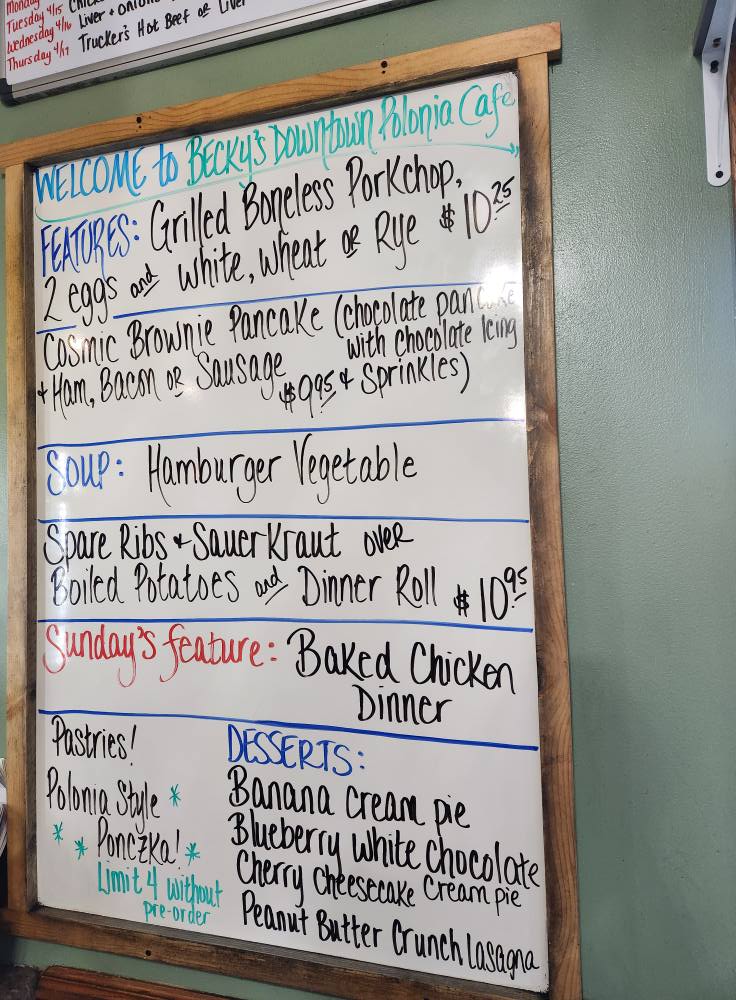 Monday
Tuesday 4/15
Wednesday 4/16 Liver +
Thursday 4/17 Trucker's Hot Beef or Liver
WELCOME to BECKY'S DOWNTOWN Polonia Cafe
FEATURES: Grilled Boneless Porkchop,
2 eggs and white, wheat or Rye $10.25
Cosmic Brownie Pancake (chocolate pancake
with chocolate Icing
+ Ham, Bacon or Sausage $9.95 + Sprinkles)
Soup: Hamburger Vegetable
Spare Ribs + Sauerkraut over
Boiled Potatoes and Dinner Roll $10.95
Sunday's feature: Baked Chicken
Dinner
Pastries!
Polonia Style
Ponczka!
Limit 4 without
pre-order
DESSERTS:
Banana cream pie
Blueberry white chocolate
Cherry cheesecake cream pie
Peanut Butter Crunch Lasagna